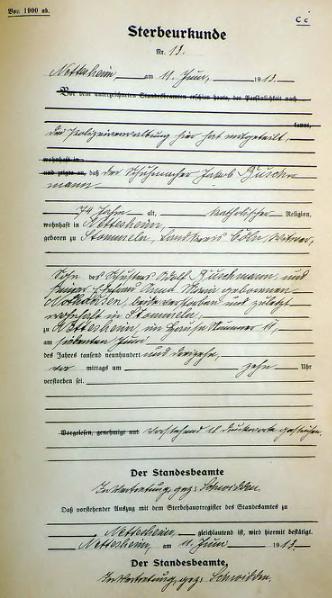 Bor. 1900 ab.
C c
Sterbeurkunde
Nr. 13.
Nettersheim, am 11. Juni, 1913.
Vor dem unterzeichneten Standesbeamten erschien heute, der Persönlichkeit nach
kannt,
Die Polizeiverwaltung hier hat mitgeteilt,
wohnhaft in
und zeigte an, daß der Schuhmacher Jakob Busch-
mann
74 Jahre alt, katholischer Religion,
wohnhaft in Nettersheim,
geboren zu Stommeln, Landkreis Cöln, Witwer,
Sohn des Adolf Buschmann und
seiner Ehefrau Anna Maria geborenen
beide verstorben und zuletzt
wohnhaft in Stommeln,
zu Nettersheim, im Hause Nummer
am siebenten Juni
des Jahres tausend neunhundert und dreizehn,
vor mittags um zehn Uhr
verstorben sei.
Vorgelesen, genehmigt und Vorstehend Druckworte gestrichen.
Der Standesbeamte
In Vertretung, gez. Schwidden.
Daß vorstehender Auszug mit dem Sterbehauptregister des Standesamtes zu
Nettersheim, gleichlautend ist, wird hiermit bestätigt.
Nettersheim, am 11. Juni 1913.
Der Standesbeamte,
In Vertretung, gez. Schwidden.